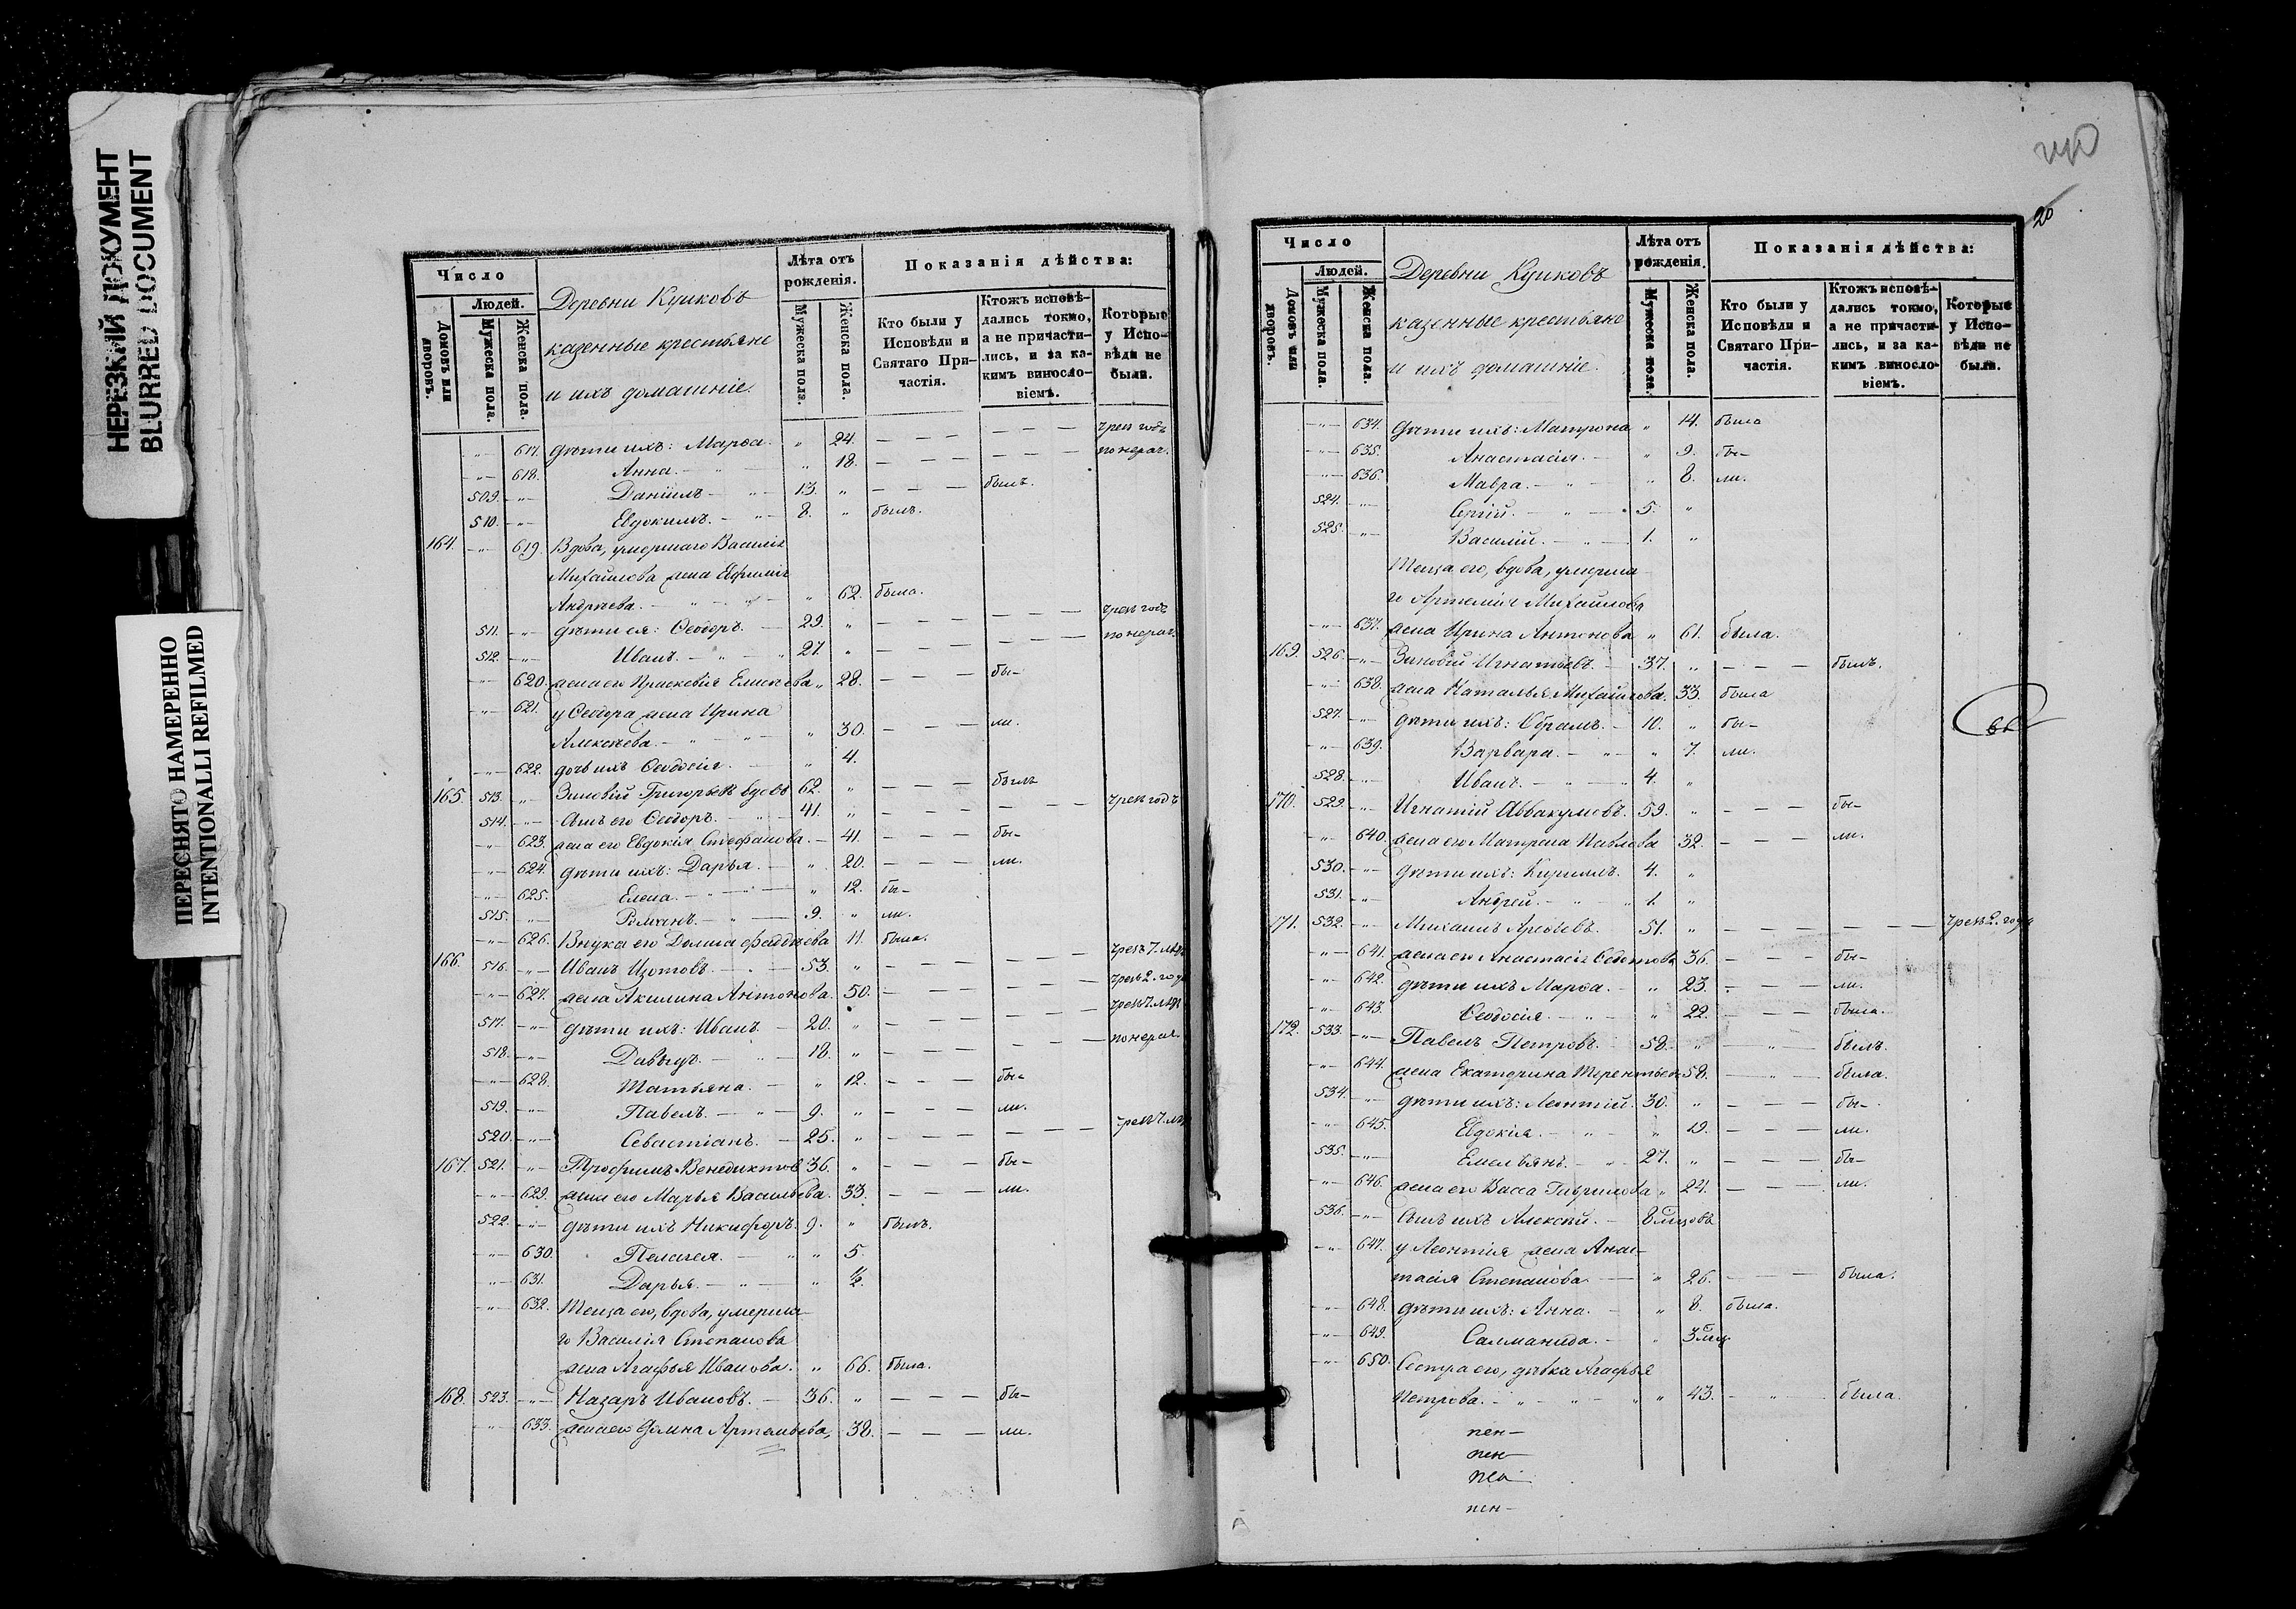 НЕРЕЗКИЙ ДОКУМЕНТ
BLURRED DOCUMENT
ПЕРЕСНЯТО НАМЕРЕННО
INTENTIONALLI REFILMED
Число
Людей.
Домовъ или дворовъ.
Мужеска пола.
Женска пола.
Деревни Кушковъ
казенные крестьяне
и ихъ домашніе.
Лѣта отъ рожденія.
Мужеска пола.
Женска пола.
Показанія дѣйства:
Кто были у Исповѣди и Святаго Причастія.
Ктожъ исповѣдались токмо, а не причастились, и за какимъ винословіемъ.
Которые у Исповѣди не были.
-„- 617. дѣти ихъ: Марѳа. „ 24. — — — — — — чрез годъ
-„- 618. Анна. — „ 18. — — — — — — по нерач.
509. -„- Даніилъ — „ — 13. „ — — — былъ.
510. -„- Евдокимъ. — „ — 8. „ былъ.
164. -„- 619. Вдова, умершаго Василія
Михайлова жена Евфимія
Андреева. — „ — „ — „ 62. была.
511. -„- дѣти ея: Ѳеодоръ. — 29. „ — — — — — — чрез годъ
512. -„- Иванъ. — „ — „ 27. „ — — — — — — по нерач.
-„- 620. жена его Праскевія Елисѣева „ 28. — — — бы-
-„- 621. у Ѳеодора жена Ирина
Алексѣева. — „ — „ — „ 30. — — — ли.
-„- 622. дочь ихъ Ѳеодосія. — „ 4.
165. 513. -„- Зиновій Григорьевъ вдовъ 62. „ — — — былъ
514. -„- Сынъ его Ѳеодоръ. — „ — 41. „ — — — — — — чрез годъ
-„- 623. жена его Евдокія Стефанова. — 41. — — — бы-
-„- 624. дѣти ихъ: Дарья. — „ 20. — — — ли.
-„- 625. Елена. — „ — „ 12. бы-
515. -„- Романъ. — „ — 9. „ ли.
-„- 626. Внука его Домна Фаддѣева 11. была.
166. 516. -„- Иванъ Изотовъ. — „ — 53. „ — — — — — — чрезъ 7. лѣтъ
-„- 627. жена Акилина Антонова. 50. — — — — — — чрезъ 2. года
517. -„- дѣти ихъ: Иванъ. — 20. „ — — — — — — чрезъ 7. лѣтъ
518. -„- Давыдъ. — „ — 18. „ — — — — — — по нерач.
-„- 628. Татьяна. — „ 12. — — — бы-
519. -„- Павелъ. — „ — 9. „ — — — ли.
520. -„- Севастіанъ. — 25. „ — — — — — — чрезъ 7. лѣтъ
167. 521. -„- Трофимъ Венедиктовъ 36. „ — — — бы-
-„- 629. жена его Марья Васильева. 33. — — — ли.
522. -„- дѣти ихъ Никифоръ. 9. „ былъ.
-„- 630. Пелагея. — „ „ 5.
-„- 631. Дарья. — „ — „ ½.
-„- 632. Теща его, вдова, умерша-
го Василія Степанова
жена Агафья Иванова. „ 66. была.
168. 523. -„- Назаръ Ивановъ. — 36. „ — — — бы-
-„- 633. жена его Домна Артемьева, 38. — — — ли.
20
Число
Людей.
Домовъ или дворовъ.
Мужеска пола.
Женска пола.
Деревни Кушковъ
казенные крестьяне
и ихъ домашніе.
Лѣта отъ рожденія.
Мужеска пола.
Женска пола.
Показанія дѣйства:
Кто были у Исповѣди и Святаго Причастія.
Ктожъ исповѣдались токмо, а не причастились, и за какимъ винословіемъ.
Которые у Исповѣди не были.
-„- 634. дѣти ихъ: Матрона „ 14. была
-„- 635. Анастасія. — „ 9. бы-
-„- 636. Мавра. — „ — „ 8. ли.
524. -„- Сергій. — „ — 5. „
525. -„- Василій. — „ — 1. „
Теща его, вдова, умерша-
го Артемія Михайлова
-„- 637. жена Ирина Антонова. „ 61. была.
169. 526. -„- Зиновій Игнатьевъ. — 37. „ — — — былъ.
-„- 638. жена Наталья Михайлова. 33. была
527. -„- дѣти ихъ: Абрамъ. — 10. „ бы-
-„- 639. Варвара. — „ — „ 7. ли.
528. -„- Иванъ. — „ — 4. „
170. 529. -„- Игнатій Аввакумовъ. 59. „ — — — бы-
-„- 640. жена его Матрена Павлова 32. — — — ли.
530. -„- дѣти ихъ: Кириллъ. 4. „
531. -„- Андрей. — „ — 1. „
171. 532. -„- Михаилъ Арефьевъ. 51. „ — — — — — — чрезъ 2. года
-„- 641. жена его Анастасія Ѳедотова 36. — — — бы-
-„- 642. дѣти ихъ Марѳа. — „ 23. — — — ли.
-„- 643. Ѳеодосія. — „ — „ 22. — — — была.
172. 533. -„- Павелъ Петровъ. — 58. „ — „ — былъ.
-„- 644. жена Екатерина Терентьева 58. — „ — была.
534. -„- дѣти ихъ: Леонтій. 30. „ — — — бы-
-„- 645. Евдокія. — „ — „ 19. — — — ли.
535. -„- Емельянъ. — „ — 27. „ — — — бы-
-„- 646. жена его Васса Гаврилова „ 24. — — — ли.
536. -„- Сынъ ихъ Алексѣй. — 8 мцовъ
-„- 647. у Леонтія жена Анас-
тасія Степанова. — „ 26. — — — была.
-„- 648. дѣти ихъ: Анна. — „ 8. была.
-„- 649. Салманида. — „ 3 мц
-„- 650. Сестра его, дѣвка Агафья
Петрова. — „ — „ — „ „ 43. — „ — была.
пен-
пен-
пен-